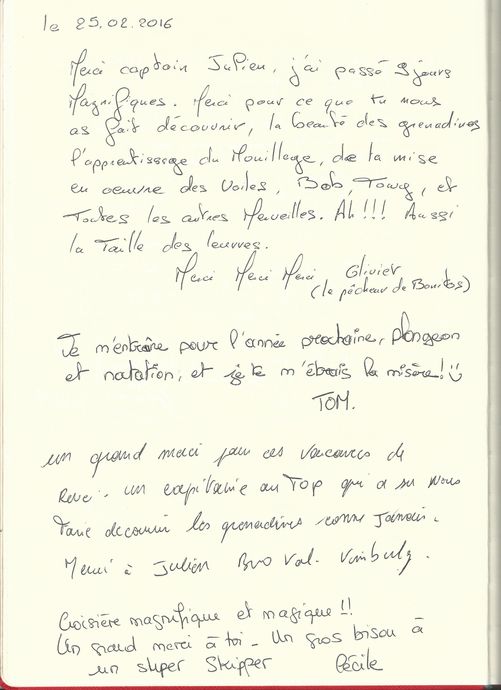 le 25.02.2016
Merci captain Julien, j'ai passé 9 jours
Magnifiques. Merci pour ce que tu nous
as fait découvrir, la beauté des grenadines
l'apprentissage du Mouillage, de la mise
en oeuvre des Voiles, Bob, Tawg, et
Toutes les autres Merveilles. Ah!!! Aussi
la Taille des leurres.
Merci Merci Merci Olivier
(le pêcheur de Bonitos)
Je m'entraîne pour l'année prochaine, plongeon
et natation, et je te m'ébrais la misère!
TOM.
un grand merci pour ces vacances de
Reve. un capitaine au Top qui a su nous
faire decouvrir les grenadines comme Jamais.
Merci à Julien
Croisière magnifique et magique!!
Un grand merci à toi - Un gros bisou à
un super Skipper Cécile